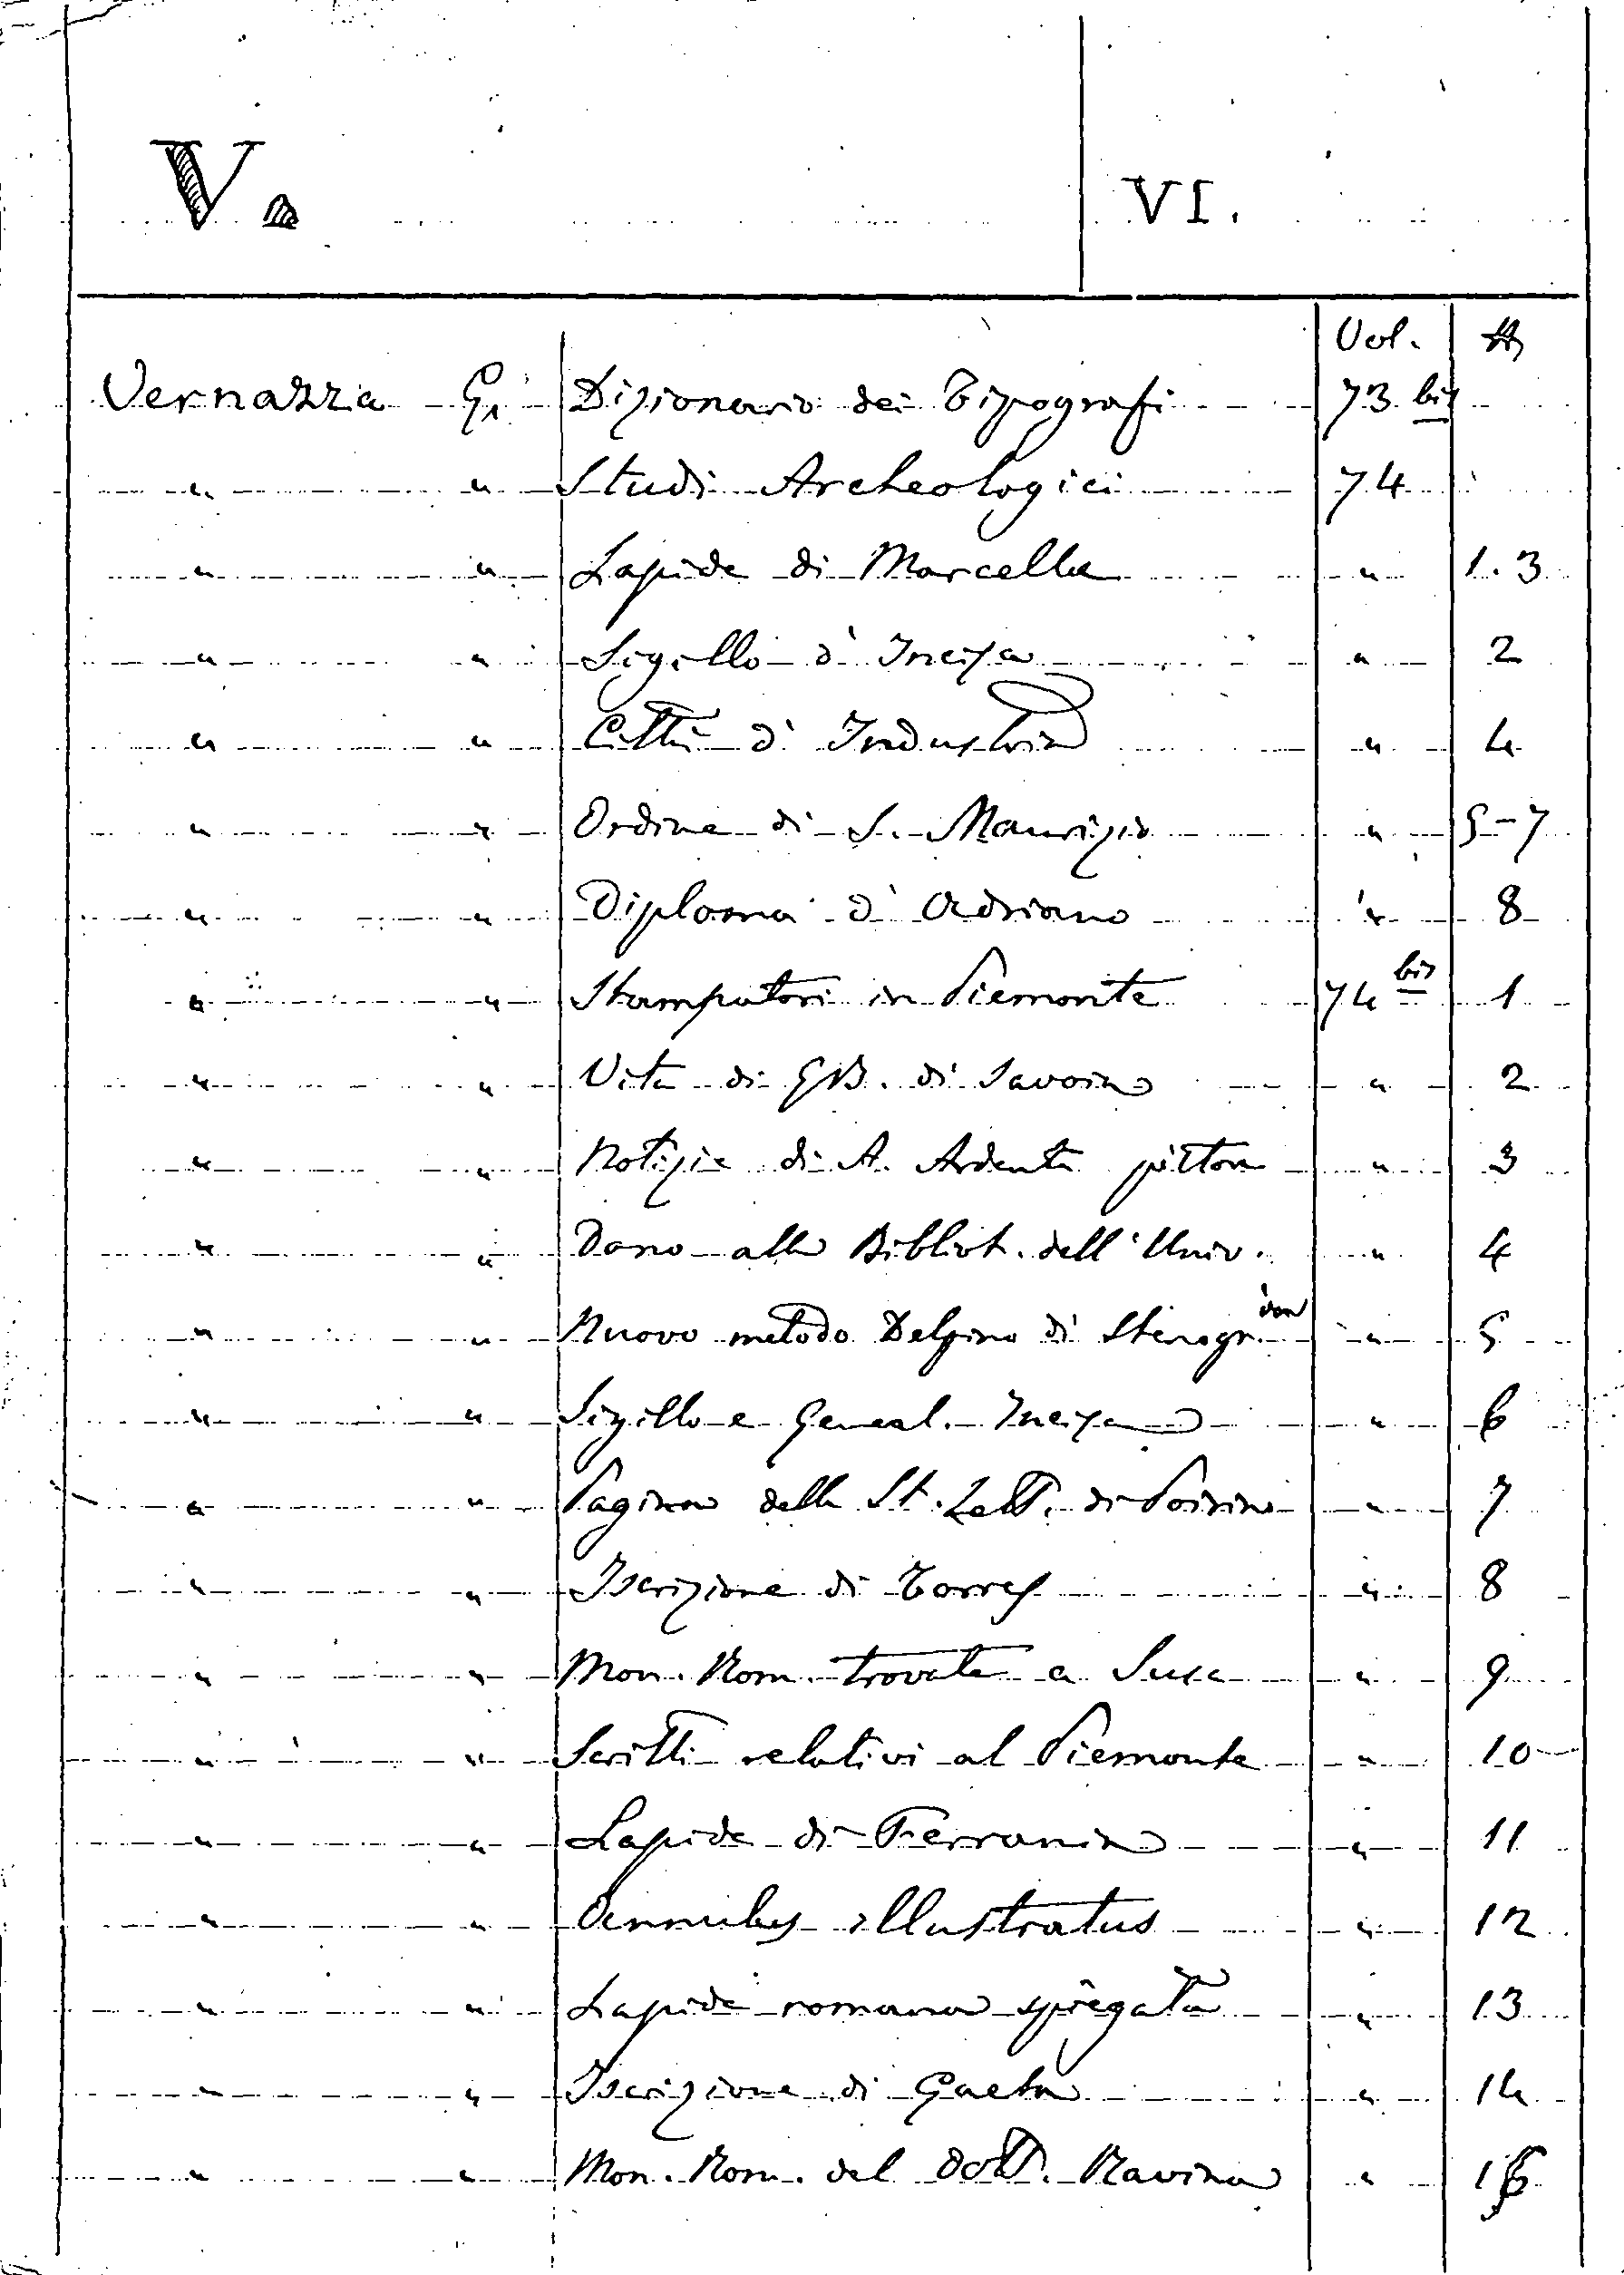 V.
VI.
Vol. №
Vernazza G. Dizionario dei Tipografi 73 bis
" " Studi Archeologici 74
" " Lapide di Marcella " 1.3
" " Sigillo d' Incisa " 2
" " Città d' Industria " 4
" " Ordine di S. Maurizio " 5-7
" " Diploma d' Adriano " 8
" " Stampatori in Piemonte 74 bis 1
" " Vita di GB. di Savoia " 2
" " Notizie di A. Ardente pittore " 3
" " Dono alla Bibliot. dell' Univ. " 4
" " Nuovo metodo Delpino di Stenogr. " 5
" " Sigillo e Geneal. Incisa " 6
" " Pagina della St. Lett. di Poirino " 7
" " Iscrizione di Torres " 8
" " Mon. Rom. trovate a Susa " 9
" " Scritti relativi al Piemonte " 10
" " Lapide di Ferrania " 11
" " illustratus " 12
" " Lapide romana spiegata " 13
" " Iscrizione di Gaeta " 14
" " Mon. Rom. del Dott. Ravina "